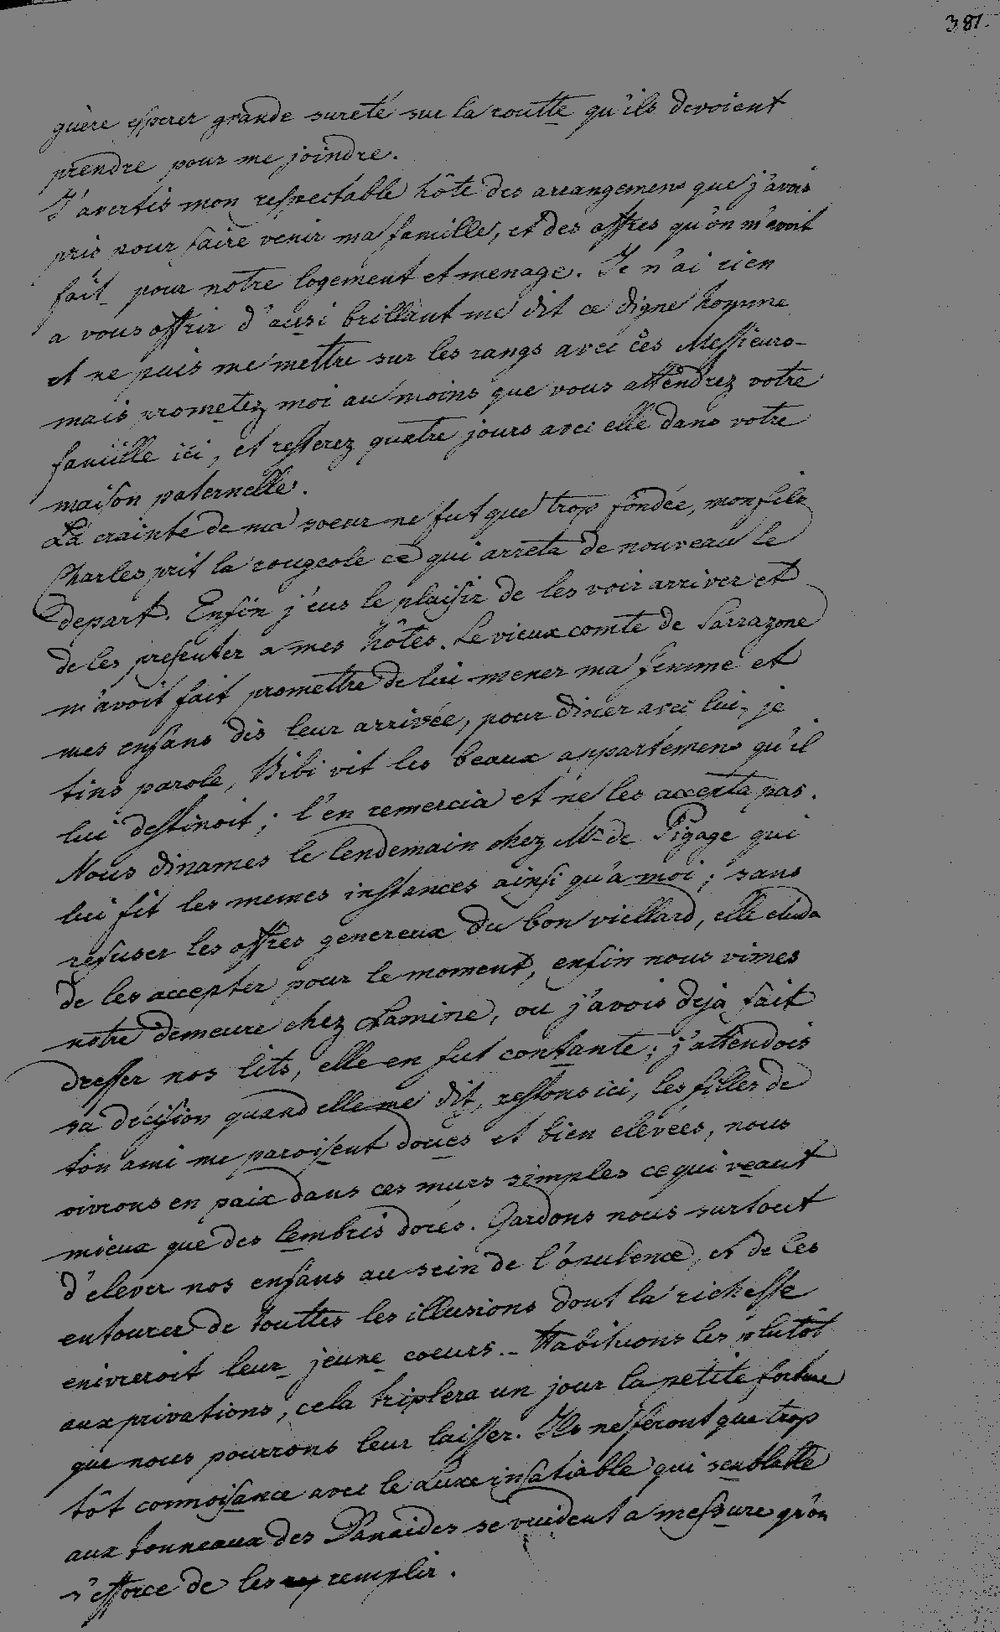 381.
guère esperer grande sureté sur la routte qu'ils devoient
prendre pour me joindre.
J'avertis mon respectable hôte des arrangemens que j'avois
pris pour faire venir ma famille, et des offres qu'on m'avoit
fait pour notre logement et menage. Je n'ai rien
a vous offrir d'ausi brillant me dit ce digne homme
et ne puis me mettre sur les rangs avec ces Messieurs-
mais prometez moi au moins que vous attendrez votre
famille ici, et resterez quatre jours avec elle dans votre
maison paternelle.
La crainte de ma soeur ne fut que trop fondée, mon fils
Charles prit la rougeole ce qui arreta de nouveau le
depart. Enfin j'eus le plaisir de les voir arriver et
de les presenter a mes hôtes. Le vieux comte de Sarrazone
m'avoit fait promettre de lui mener ma femme et
mes enfans dis leur arrivée, pour diner avec lui, je
tins parole, Bibi vit les beaux appartemens qu'il
lui destinoit; l'en remercia et ne les accepta pas.
Nous dinames le lendemain chez Mr de Pigage qui
lui fit les memes instances ainsi qu'à moi; sans
refuser les offres genereux du bon viellard, elle eluda
de les accepter pour le moment, enfin nous vimes
notre demeure chez Lamine, ou j'avois deja fait
dresser nos lits, elle en fut contante; j'attendois
sa décision quand elle me dit, restons ici, les filles de
ton ami me paroisent douces et bien elevées, nous
vivrons en paix dans ces murs simples ce qui veaut
mieux que des lembris dorés. Gardons nous surtout
d'elever nos enfans au sein de l'opulence, et de les
entourer de touttes les illusions dont la richesse
enivreroit leur jeune coeurs.- Habituons les plutôt
aux privations, cela triplera un jour la petite fortune
que nous pourrons leur laisser. Ils ne feront que trop
tôt connoisance avec le Luxe insatiable qui semblable
aux tonneaux des Danaides se vuident a messure qu'on
s'efforce de les remplir.